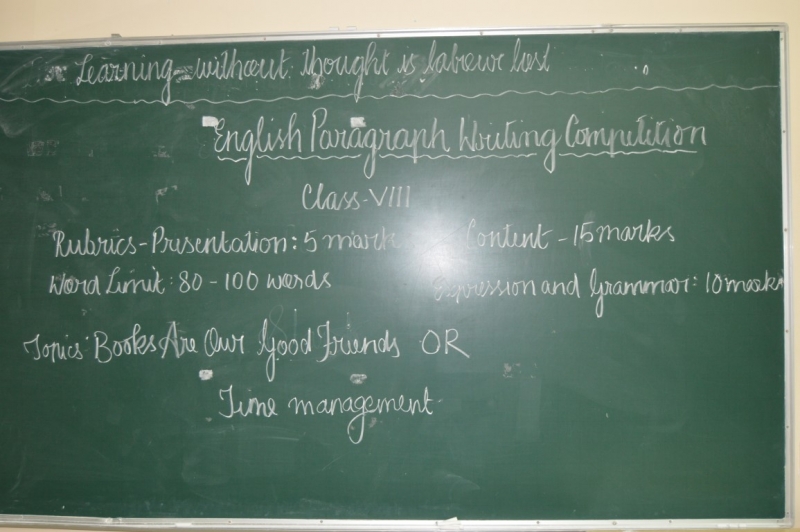 Learning without thought is labour lost
English Paragraph Writing Competition
Class-VIII
Rubrics-Presentation: 5 marks Content - 15 marks
Word Limit: 80-100 words Expression and Grammar: 10 marks
Topics: Books Are Our Good Friends OR
Time management